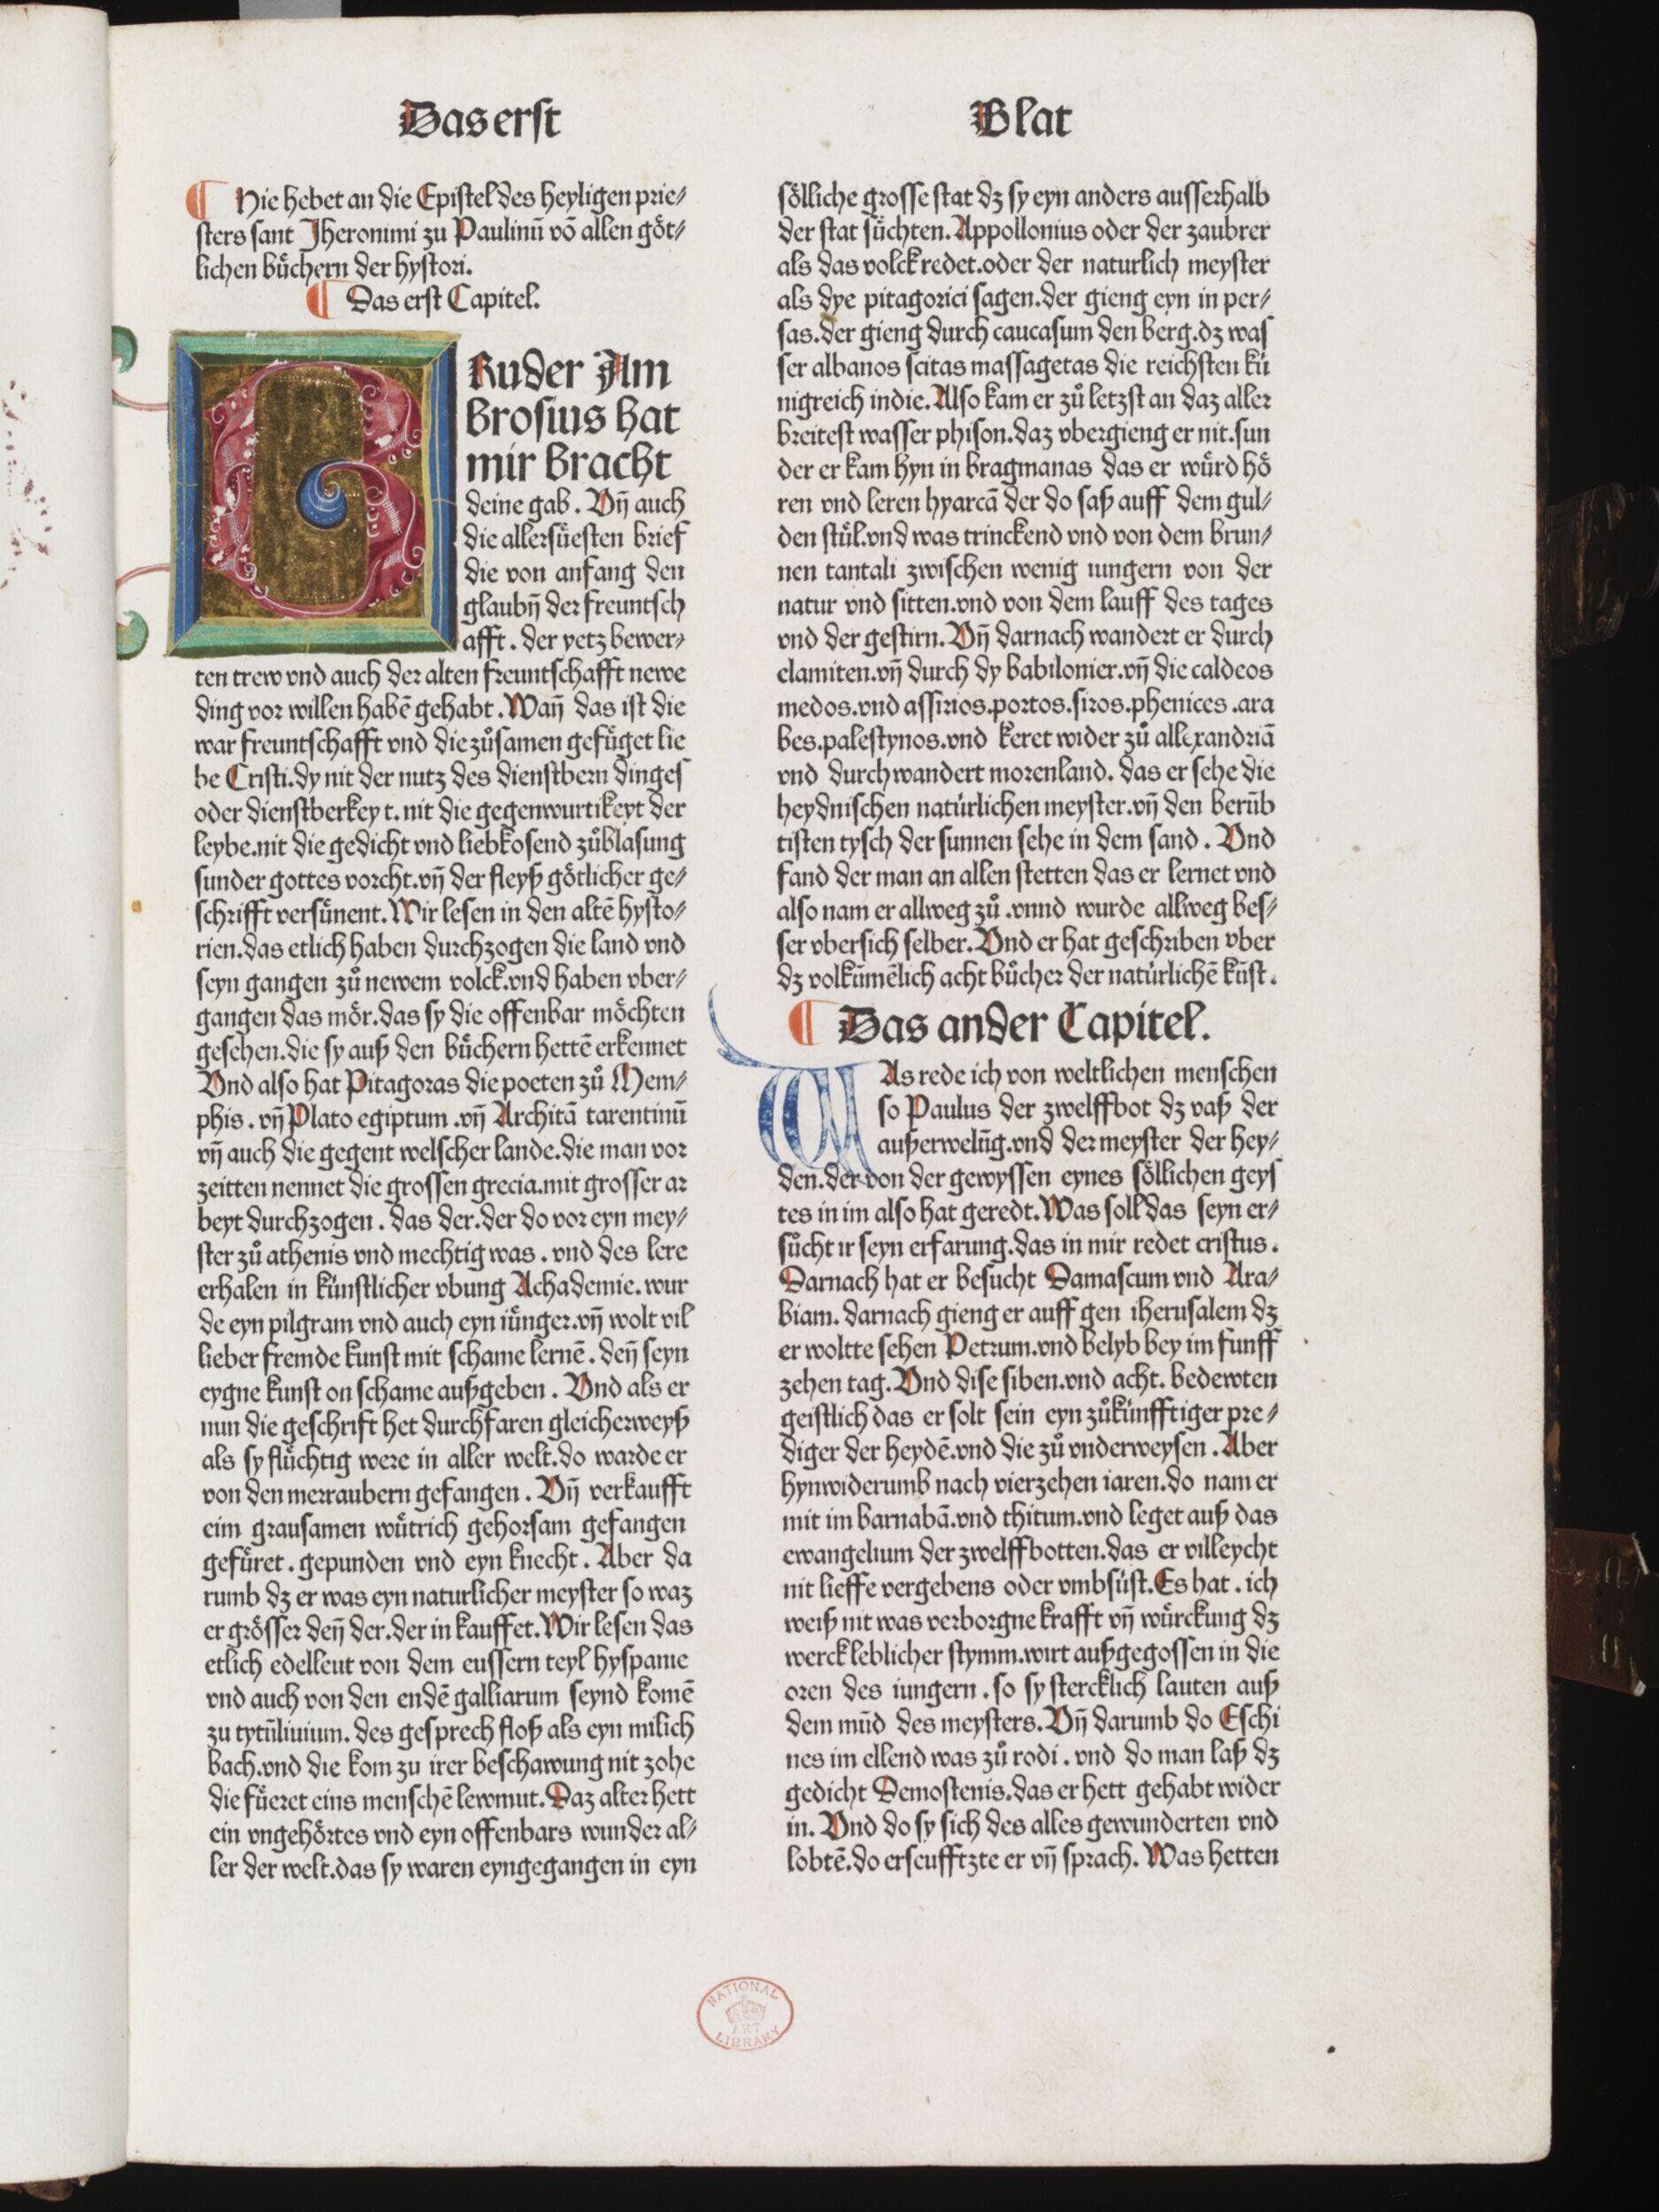 Das erst
Blat
¶ Hie hebet an die Epistel des heyligen prie⸗
sters sant Jheronimi zu Paulinū võ allen göt⸗
lichen bůchern der hystori.
¶ Das erst Capitel.
BRuder Am
brosius hat
mir bracht
deine gab. Vñ auch
die allersüesten brief
die von anfang den
glaubñ der freuntsch
afft. der yetz bewer⸗
ten trew vnd auch der alten freuntschafft newe
ding vor willen habē gehabt. Wañ das ist die
war freuntschafft vnd die zůsamen gefüget lie
be Cristi. dy nit der nutz des dienstbern dinges
oder dienstberkeyt. nit die gegenwurtikeyt der
leybe. nit die gedicht vnd liebkosend zůblasung
sunder gottes vorcht. vñ der fleyß götlicher ge⸗
schrifft versünent. Wir lesen in den altē hysto⸗
rien. das etlich haben durchzogen die land vnd
seyn gangen zů newem volck. vnd haben vber⸗
gangen das mör. das sy die offenbar möchten
gesehen. die sy auß den büchern hettē erkennet
Vnd also hat Pitagoras die poeten zů Mem⸗
phis. vñ Plato egiptum. vñ Architā tarentinū
vñ auch die gegent welscher lande. die man vor
zeitten nennet die grossen grecia. mit grosser ar
beyt durchzogen. das der. der do vor eyn mey⸗
ster zů athenis vnd mechtig was. vnd des lere
erhalen in künstlicher vbung Achademie. wur
de eyn pilgram vnd auch eyn iünger. vñ wolt vil
lieber fremde kunst mit schame lernē. deñ seyn
eygne kunst on schame außgeben. Vnd als er
nun die geschrift het durchfaren gleicherweyß
als sy flüchtig were in aller welt. do warde er
von den merraubern gefangen. Vñ verkaufft
eim grausamen wütrich gehorsam gefangen
gefüret. gepunden vnd eyn knecht. Aber da
rumb dz er was eyn naturlicher meyster so waz
er grösser deñ der. der in kauffet. Wir lesen das
etlich edelleut von dem eussern teyl hyspanie
vnd auch von den endē galliarum seynd komē
zu tytūliuium. des gesprech floß als eyn milich
bach. vnd die kom zu irer beschawung nit zohe
die füeret eins menschē lewmut. Daz alter hett
ein vngehörtes vnd eyn offenbars wunder al⸗
ler der welt. das sy waren eyngegangen in eyn
sölliche grosse stat dz sy eyn anders ausserhalb
der stat süchten. Appollonius oder der zaubrer
als das volck redet. oder der naturlich meyster
als dye pitagorici sagen. der gieng eyn in per⸗
sas. der gieng durch caucasum den berg. dz was
ser albanos scitas massagetas die reichsten kü
nigreich indie. Also kam er zů letzst an daz aller
breitest wasser phison. daz vbergieng er nit. sun
der er kam hyn in bragmanas das er würd hö
ren vnd leren hyarcā der do saß auff dem gul⸗
den stůl. vnd was trinckend vnd von dem brun⸗
nen tantali zwischen wenig iungern von der
natur vnd sitten. vnd von dem lauff des tages
vnd der gestirn. Vñ darnach wandert er durch
elamiten. vñ durch dy babilonier. vñ die caldeos
medos. vnd assirios. portos. siros. phenices. ara
bes. palestynos. vnd keret wider zů allexandriā
vnd durchwandert morenland. das er sehe die
heydnischen natürlichen meyster. vñ den berūb
tisten tysch der sunnen sehe in dem sand. Vnd
fand der man an allen stetten das er lernet vnd
also nam er allweg zů. vnnd wurde allweg bes⸗
ser vber sich selber. Vnd er hat geschriben vber
dz volkūmēlich acht bůcher der natürlichē kūst.
¶ Das ander Capitel.
WAs rede ich von weltlichen menschen
so Paulus der zwelffbot dz vaß der
außerwelūg. vnd der meyster der hey⸗
den. der von der gewyssen eynes söllichen geys
tes in im also hat geredt. Was soll das seyn er⸗
sůcht ir seyn erfarung. das in mir redet cristus.
Darnach hat er besucht Damascum vnd Ara⸗
biam. darnach gieng er auff gen iherusalem dz
er woltte sehen Petrum. vnd belyb bey im funff
zehen tag. Vnd dise siben. vnd acht. bedewten
geistlich das er solt sein eyn zůkünfftiger pre⸗
diger der heydē. vnd die zů vnderweysen. Aber
hynwiderumb nach vierzehen iaren. do nam er
mit im barnabā. vnd thitum. vnd leget auß das
ewangelium der zwelffbotten. das er villeycht
nit lieffe vergebens oder vmbsüst. Es hat. ich
weiß nit was verborgne krafft vñ würckung dz
werck leblicher stymm. wirt außgegossen in die
oren des iungern. so sy stercklich lauten auß
dem mūd des meysters. Vñ darumb do Eschi
nes im ellend was zů rodi. vnd do man laß dz
gedicht Demostenis. das er hett gehabt wider
in. Vnd do sy sich des alles gewunderten vnd
lobtē. do erseufftzte er vñ sprach. Was hetten
NATIONAL
ART
LIBRARY